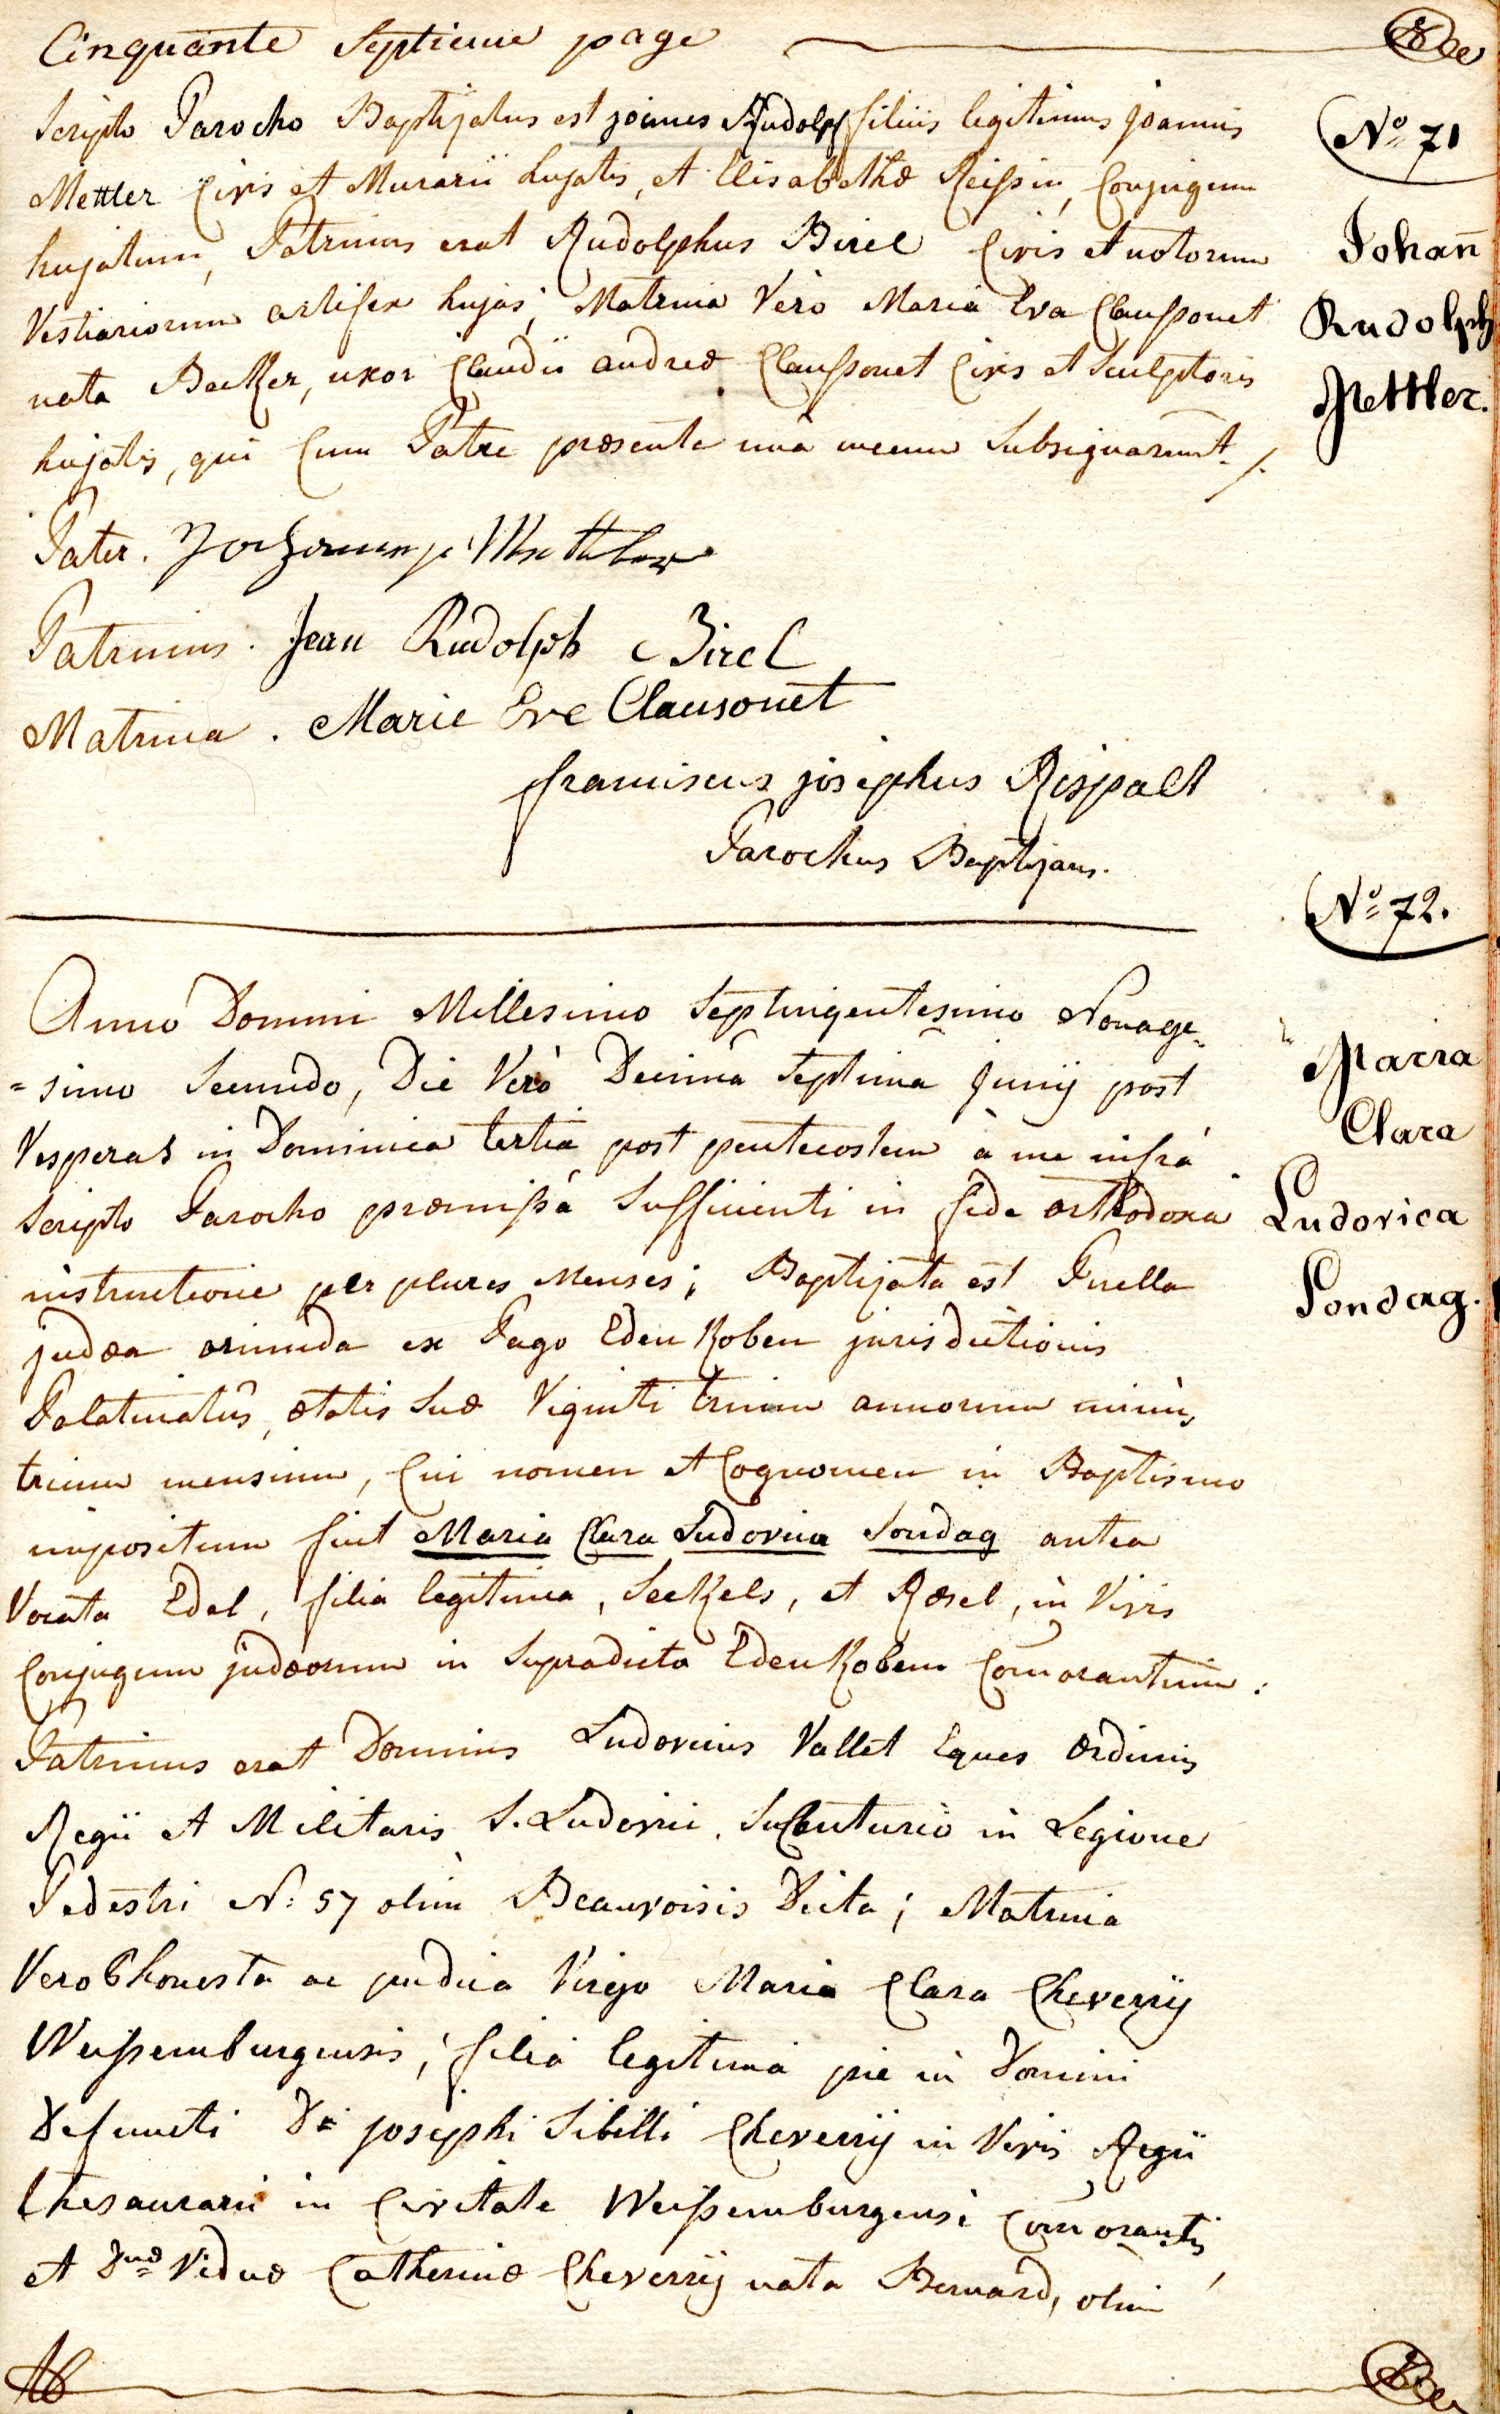 Cinquante Septieme page
scripto Parocho Baptizatus est joannes Rudolph filius legitimus joannis
N.º 71
Mettler Civis et Murarii hujatis, et Elisabethæ Reissin, Conjugum
hujatum, Patrinus erat Rudolphus Birel Civis et notorum
Johan̄
Vestiariorum artifex hujas; Matrina Vero Maria Eva Claussonet
Rudolph
nata Becker, uxor Claudii andreæ Claussonet Civis et Sculptoris
Mettler.
hujatis, qui Cum Patre præsente unà mecum Subsignarunt ./.
Pater. Mettler
Patrinus. Jean Rudolph Birel
Matrina. Marie Eve Clausonet
franciscus josephus Rispalt
Parochus Baptizans.
N.º 72.
Anno Domini Millesimo Septingentesimo Nonage-
=simo Secundo, Die Verò Decimâ Septima Junij post
Maria
Vesperas in Dominica tertia post pentecostem à me infrà
Clara
scripto Parocho præmissâ Sufficienti in fide orthodoxa
Ludovica
instructione per plures Menses; Baptizata est Puella
Sondag.
judæa oriunda ex Pago Edenkoben jurisdictionis
Palatinatûs, ætatis Suæ Viginti trium annorum minùs
trium mensium, Cui nomen et Cognomen in Baptismo
impositum fuit Maria Clara Ludovica Sondag antea
Vocata Edel, filia legitima, Seckels, et Ræsel, in Vivis
Conjugum judæorum in Supradicto Edenkoben Com̄orantium:
Patrinus erat Dominus Ludovicus Vallet Eques ordinis
Regii et Militaris S. Ludovici, SubCenturio in Legione
Pedestri N: 57 olim Beauvoisis Dicta; Matrina
Vero honesta ac pudica Virgo Maria Clara Cheverrij
Weissemburgensis, filia legitima pie in Domini
Defuncti D. josephi Sibilli Cheverrij in Vivis Regii
thesaurarii in Civitate Weissemburgensi Com̄orantis,
et Dnæ Viduæ Catherinæ Cheverrij nata Bernard, olim